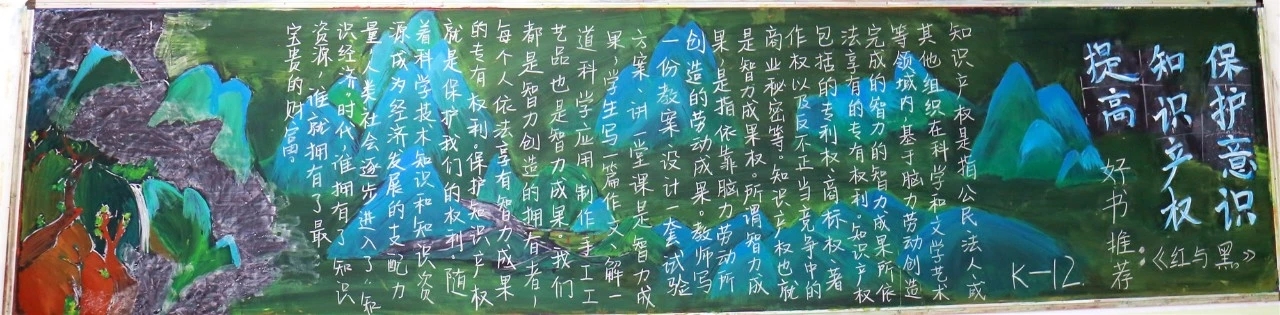 保护意识
知识产权
提高
好书推荐：《红与黑》
K-12
知识产权是指公民法人或
其他组织在科学和文学艺术
等领域内，基于脑力劳动创造
完成的智力的智力成果所依
法享有的专有权利。知识产权
包括的专利权、商标权、著
作权以及反不正当竞争中的
商业秘密等。知识产权也就
是智力成果权。所谓智力成
果，是指依靠脑力劳动所
创造的劳动成果。教师写
一份教案、设计一套试验
方案、讲一堂课是智力成
果，学生写一篇作文、解一
道科学应用、制作手工工
艺品也是智力成果，我们
都是智力创造的拥有者，
每个人依法享有智力成果
的专有权利。保护知识产权
就是保护我们的权利，随
着科学技术知识和知识资
源成为经济发展的支配力
量，人类社会逐步进入了"知
识经济"时代，谁拥有了知识
资源，谁就拥有了最
宝贵的财富。